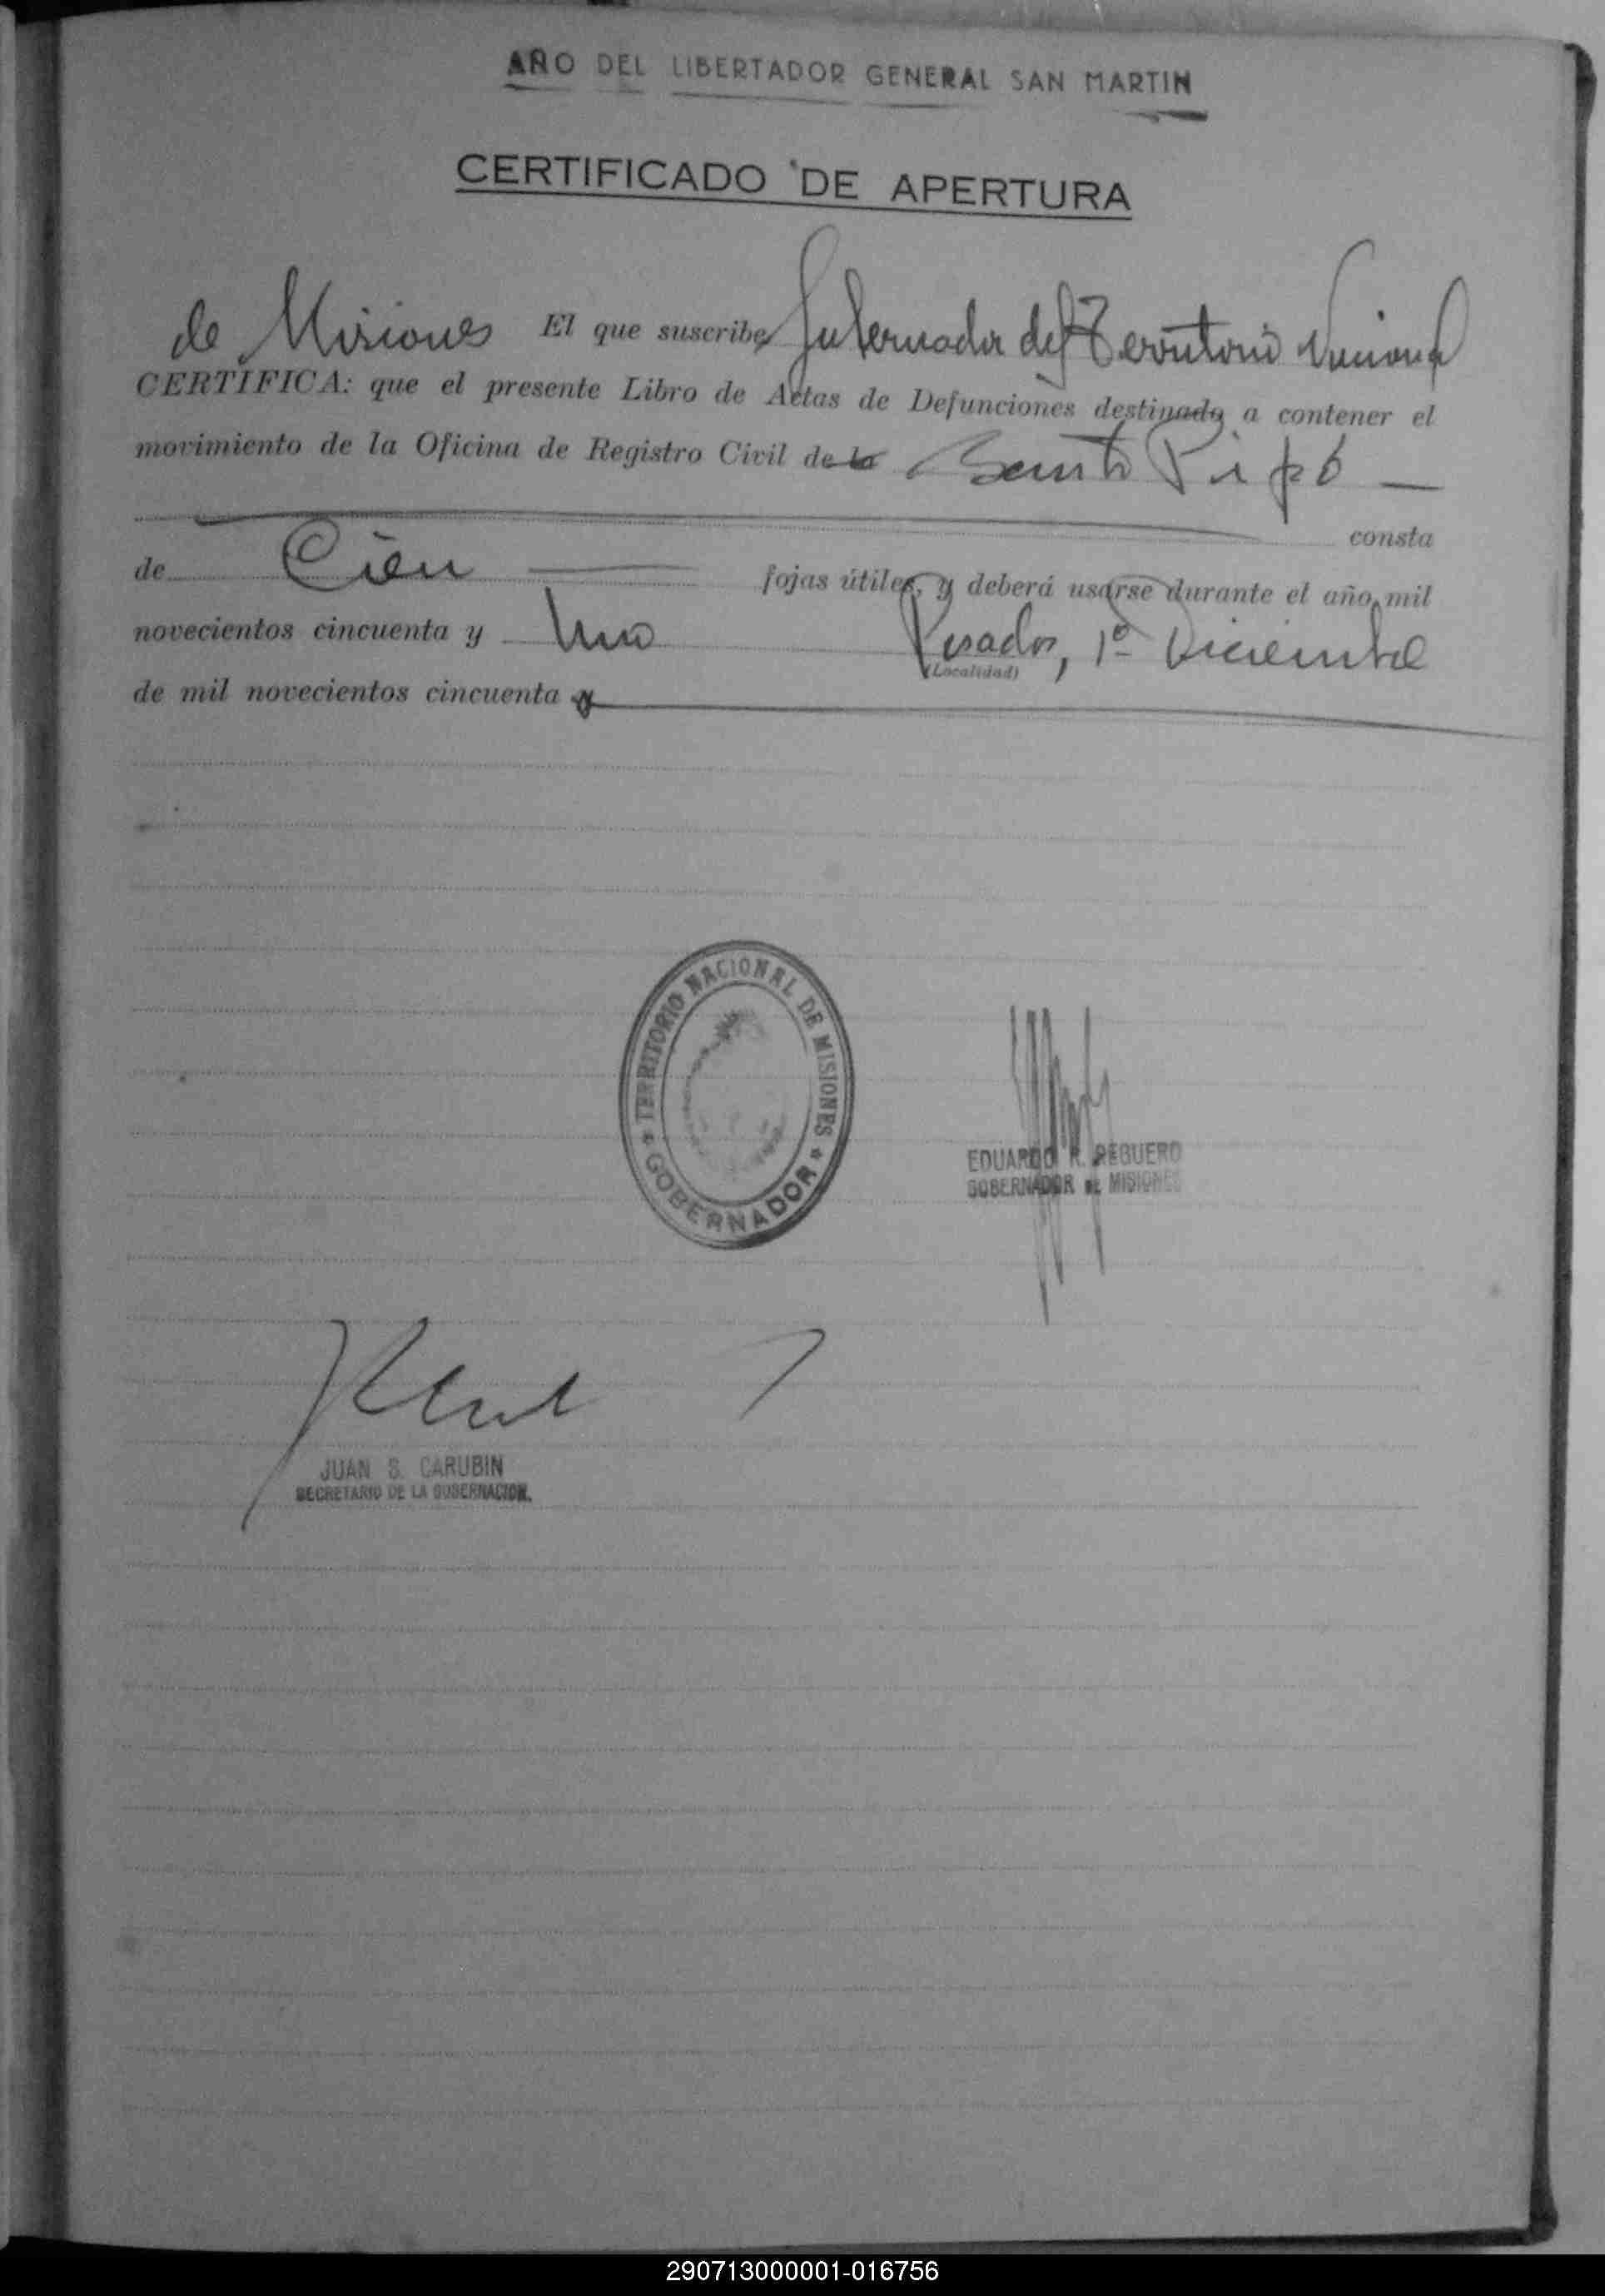 AÑO DEL LIBERTADOR GENERAL SAN MARTIN
CERTIFICADO DE APERTURA
de Misiones El que suscribe, Gobernador del Territorio Nacional
CERTIFICA: que el presente Libro de Actas de Defunciones destinado a contener el
movimiento de la Oficina de Registro Civil de la Santo Pipó
consta
de Cien fojas útiles, y deberá usarse durante el año mil
novecientos cincuenta y Uno Posadas, 1º Diciembre
(Localidad)
de mil novecientos cincuenta y
TERRITORIO NACIONAL DE MISIONES
GOBERNADOR
EDUARDO R. REGUERO
GOBERNADOR DE MISIONES
JUAN S. CARUBIN
SECRETARIO DE LA GOBERNACION.
290713000001-016756